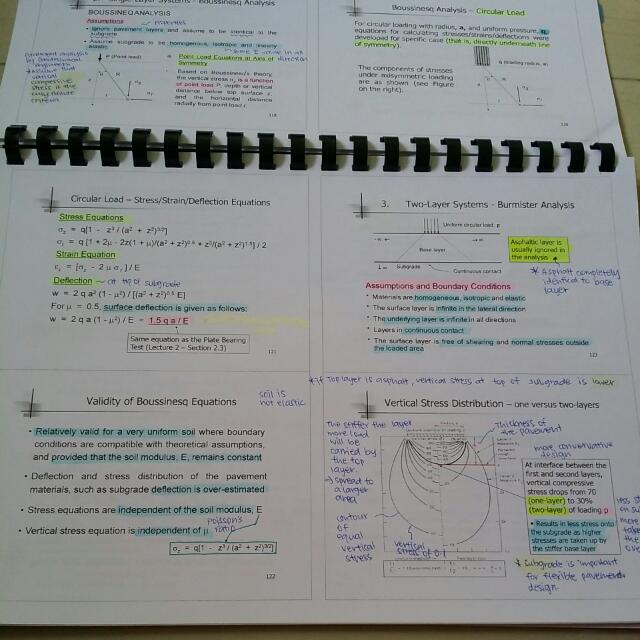 Single Layer Systems - Boussinesq Analysis
BOUSSINESQ ANALYSIS
Assumptions
properties
Ignore pavement layers and assume to be identical to the
subgrade
Assume subgrade to be homogenous, isotropic and linearly
elastic
P (Point load)
Point Load Equations at Axis of
Symmetry
Based on Boussinesq's theory,
the vertical stress σz is a function
of point load P, depth or vertical
distance below top surface z, and
the horizontal distance
radially from point load r.
118
Boussinesq Analysis – Circular Load
For circular loading with radius, a, and uniform pressure, q,
equations for calculating stresses/strains/deflections were
developed for specific case (that is, directly underneath line
of symmetry).
The components of
stresses under
axisymmetric loading
are as shown (see Figure
on the right).
q (loading radius, a)
120
Circular Load – Stress/Strain/Deflection Equations
Stress Equations
σz = q[1 - z³/(a² + z²)^3/2]
σr = q [1 + 2μ - 2z(1 + μ)/(a² + z²)^0.5 + z³/(a² + z²)^1.5] / 2
Strain Equation
εz = [σz - 2 μ σr] / E
Deflection ~ at top of subgrade
w = 2 q a² (1-μ²) / [(a² + z²)^0.5 E]
For μ = 0.5, surface deflection is given as follows:
w = 2 q a (1-μ²) / E = 1.5 q a / E
Same equation as the Plate Bearing
Test (Lecture 2 – Section 2.3)
121
3. Two-Layer Systems - Burmister Analysis
Uniform circular load, p
- ∞
∞
Base layer
Subgrade
Continuous contact
Asphaltic layer is
usually ignored in
the analysis
* Asphalt completely
identical to base
layer
Assumptions and Boundary Conditions
• Materials are homogeneous, isotropic and elastic
• The surface layer is infinite in the lateral direction
• The underlying layer is infinite in all directions
• Layers in continuous contact
• The surface layer is free of shearing and normal stresses outside
the loaded area
123
Validity of Boussinesq Equations
soil is
not elastic
• Relatively valid for a very uniform soil where boundary
conditions are compatible with theoretical assumptions,
and provided that the soil modulus, E, remains constant
• Deflection and stress distribution of the pavement
materials, such as subgrade deflection is over-estimated
• Stress equations are independent of the soil modulus, E
• Vertical stress equation is independent of μ
poisson's
ratio
σz = q[1 - z³/(a² + z²)^3/2]
122
If top layer is asphalt, vertical stress at top of subgrade is lower
Vertical Stress Distribution – one versus two-layers
The stiffer the layer
more load
will be
carried by
the top
layer.
→ spread to
a larger
area
contour
equal
vertical
stress
vertical
stress of 0.1
Thickness of
the pavement
more conservative
design
At interface between the
first and second layers,
vertical compressive
stress drops from 70
(one-layer) to 30%
(two-layer) of loading p
• Results in less stress onto
the subgrade as higher
stresses are taken up by
the stiffer base layer
* Subgrade is important
for flexible pavement
design.